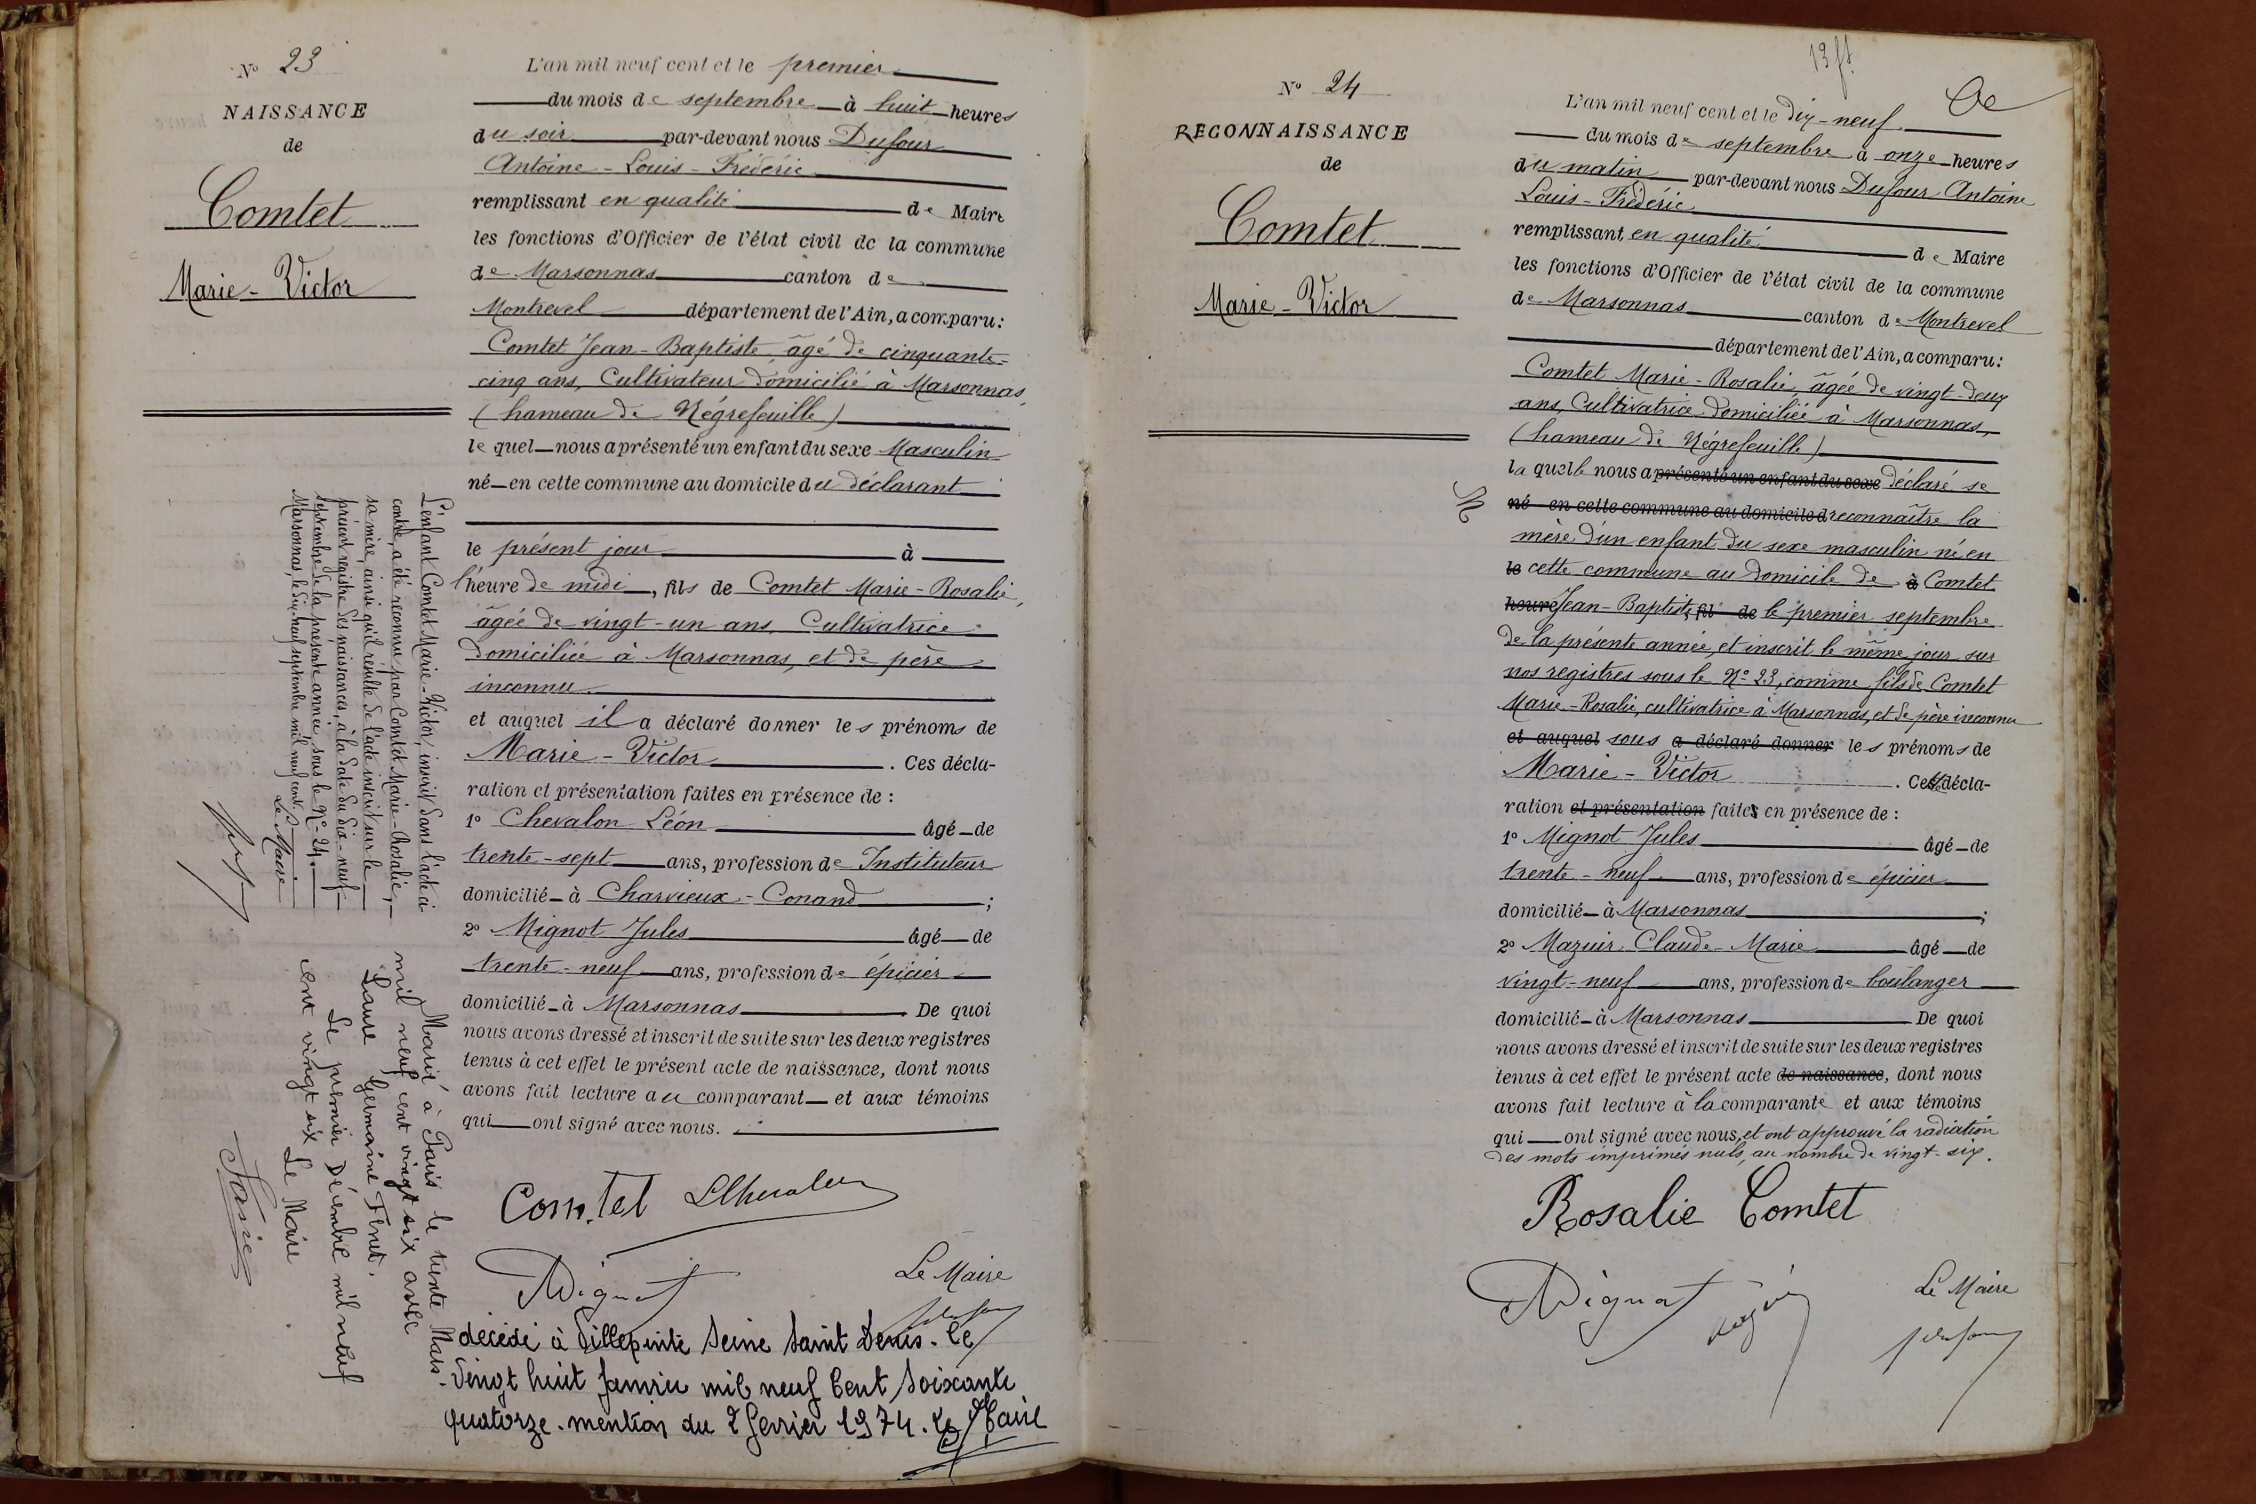 No 23
NAISSANCE
de
Comtet
Marie-Victor
L'an mil neuf cent et le premier
du mois de septembre à huit heures
du soir par-devant nous Dufour
Antoine-Louis-Frédéric
remplissant en qualité de Maire
les fonctions d'Officier de l'état civil de la commune
de Marsonnas canton de
Montrevel département de l'Ain, a comparu:
Comtet Jean-Baptiste âgé de cinquante-
cinq ans, Cultivateur domicilié à Marsonnas,
(hameau de Négrefeuille)
lequel nous a présenté un enfant du sexe Masculin
né en cette commune au domicile du déclarant
le présent jour à
l'heure de midi, fils de Comtet Marie-Rosalie,
âgée de vingt-un ans, Cultivatrice
domiciliée à Marsonnas, et de père
inconnu
et auquel il a déclaré donner les prénoms de
Marie-Victor. Ces décla-
ration et présentation faites en présence de :
1º Chevalon Léon âgé de
trente-sept ans, profession de Instituteur
domicilié à Charvieux-Conand;
2º Mignot Jules âgé de
trente-neuf ans, profession de épicier
domicilié à Marsonnas. De quoi
nous avons dressé et inscrit de suite sur les deux registres
tenus à cet effet le présent acte de naissance, dont nous
avons fait lecture au comparant et aux témoins
qui ont signé avec nous.
Comtet
Mignot
Le Maire
décédé à Villepinte Seine Saint Denis. le
vingt huit janvier mil neuf cent soixante
quatorze. mention du 2 février 1974. Le Maire
L'enfant Comtet Marie-Victor, inscrit dans l'acte ci
contre, a été reconnu par Comtet Marie-Rosalie,
sa mère, ainsi qu'il résulte de l'acte inscrit sur le
présent registre des naissances, à la date du dix-neuf
septembre de la présente année, sous le Nº 24.
Marsonnas, le dix-neuf septembre mil neuf cent.
Le Maire
Marié à Paris le trente Mars
mil neuf cent vingt six avec
Laure Germaine Fenet.
Le premier Décembre mil neuf
cent vingt six Le Maire
No 24
RECONNAISSANCE
de
Comtet
Marie-Victor
L'an mil neuf cent et le dix-neuf
du mois de septembre à onze heures
du matin par-devant nous Dufour Antoine
Louis-Frédéric
remplissant en qualité de Maire
les fonctions d'Officier de l'état civil de la commune
de Marsonnas canton de Montrevel
département de l'Ain, a comparu:
Comtet Marie-Rosalie, âgée de vingt-deux
ans, Cultivatrice domiciliée à Marsonnas,
(hameau de Négrefeuille)
laquelle nous a présenté un enfant du sexe déclaré se
né en cette commune au domicile d reconnaître la
mère d'un enfant du sexe masculin né en
le cette commune au domicile de à Comtet
heure Jean-Baptiste, fil de le premier septembre
de la présente année, et inscrit le même jour sur
nos registres sous le Nº 23, comme fils de Comtet
Marie-Rosalie, cultivatrice à Marsonnas, et de père inconnu
et auquel sous a déclaré donner les prénoms de
Marie-Victor. Ces décla-
ration et présentation faites en présence de :
1º Mignot Jules âgé de
trente-neuf ans, profession de épicier
domicilié à Marsonnas;
2º Mazuir Claude-Marie âgé de
vingt-neuf ans, profession de boulanger
domicilié à Marsonnas De quoi
nous avons dressé et inscrit de suite sur les deux registres
tenus à cet effet le présent acte de naissance, dont nous
avons fait lecture à la comparante et aux témoins
qui ont signé avec nous, et ont approuvé la radiation
des mots imprimés nuls, au nombre de vingt-six.
Rosalie Comtet
Mignot
Le Maire